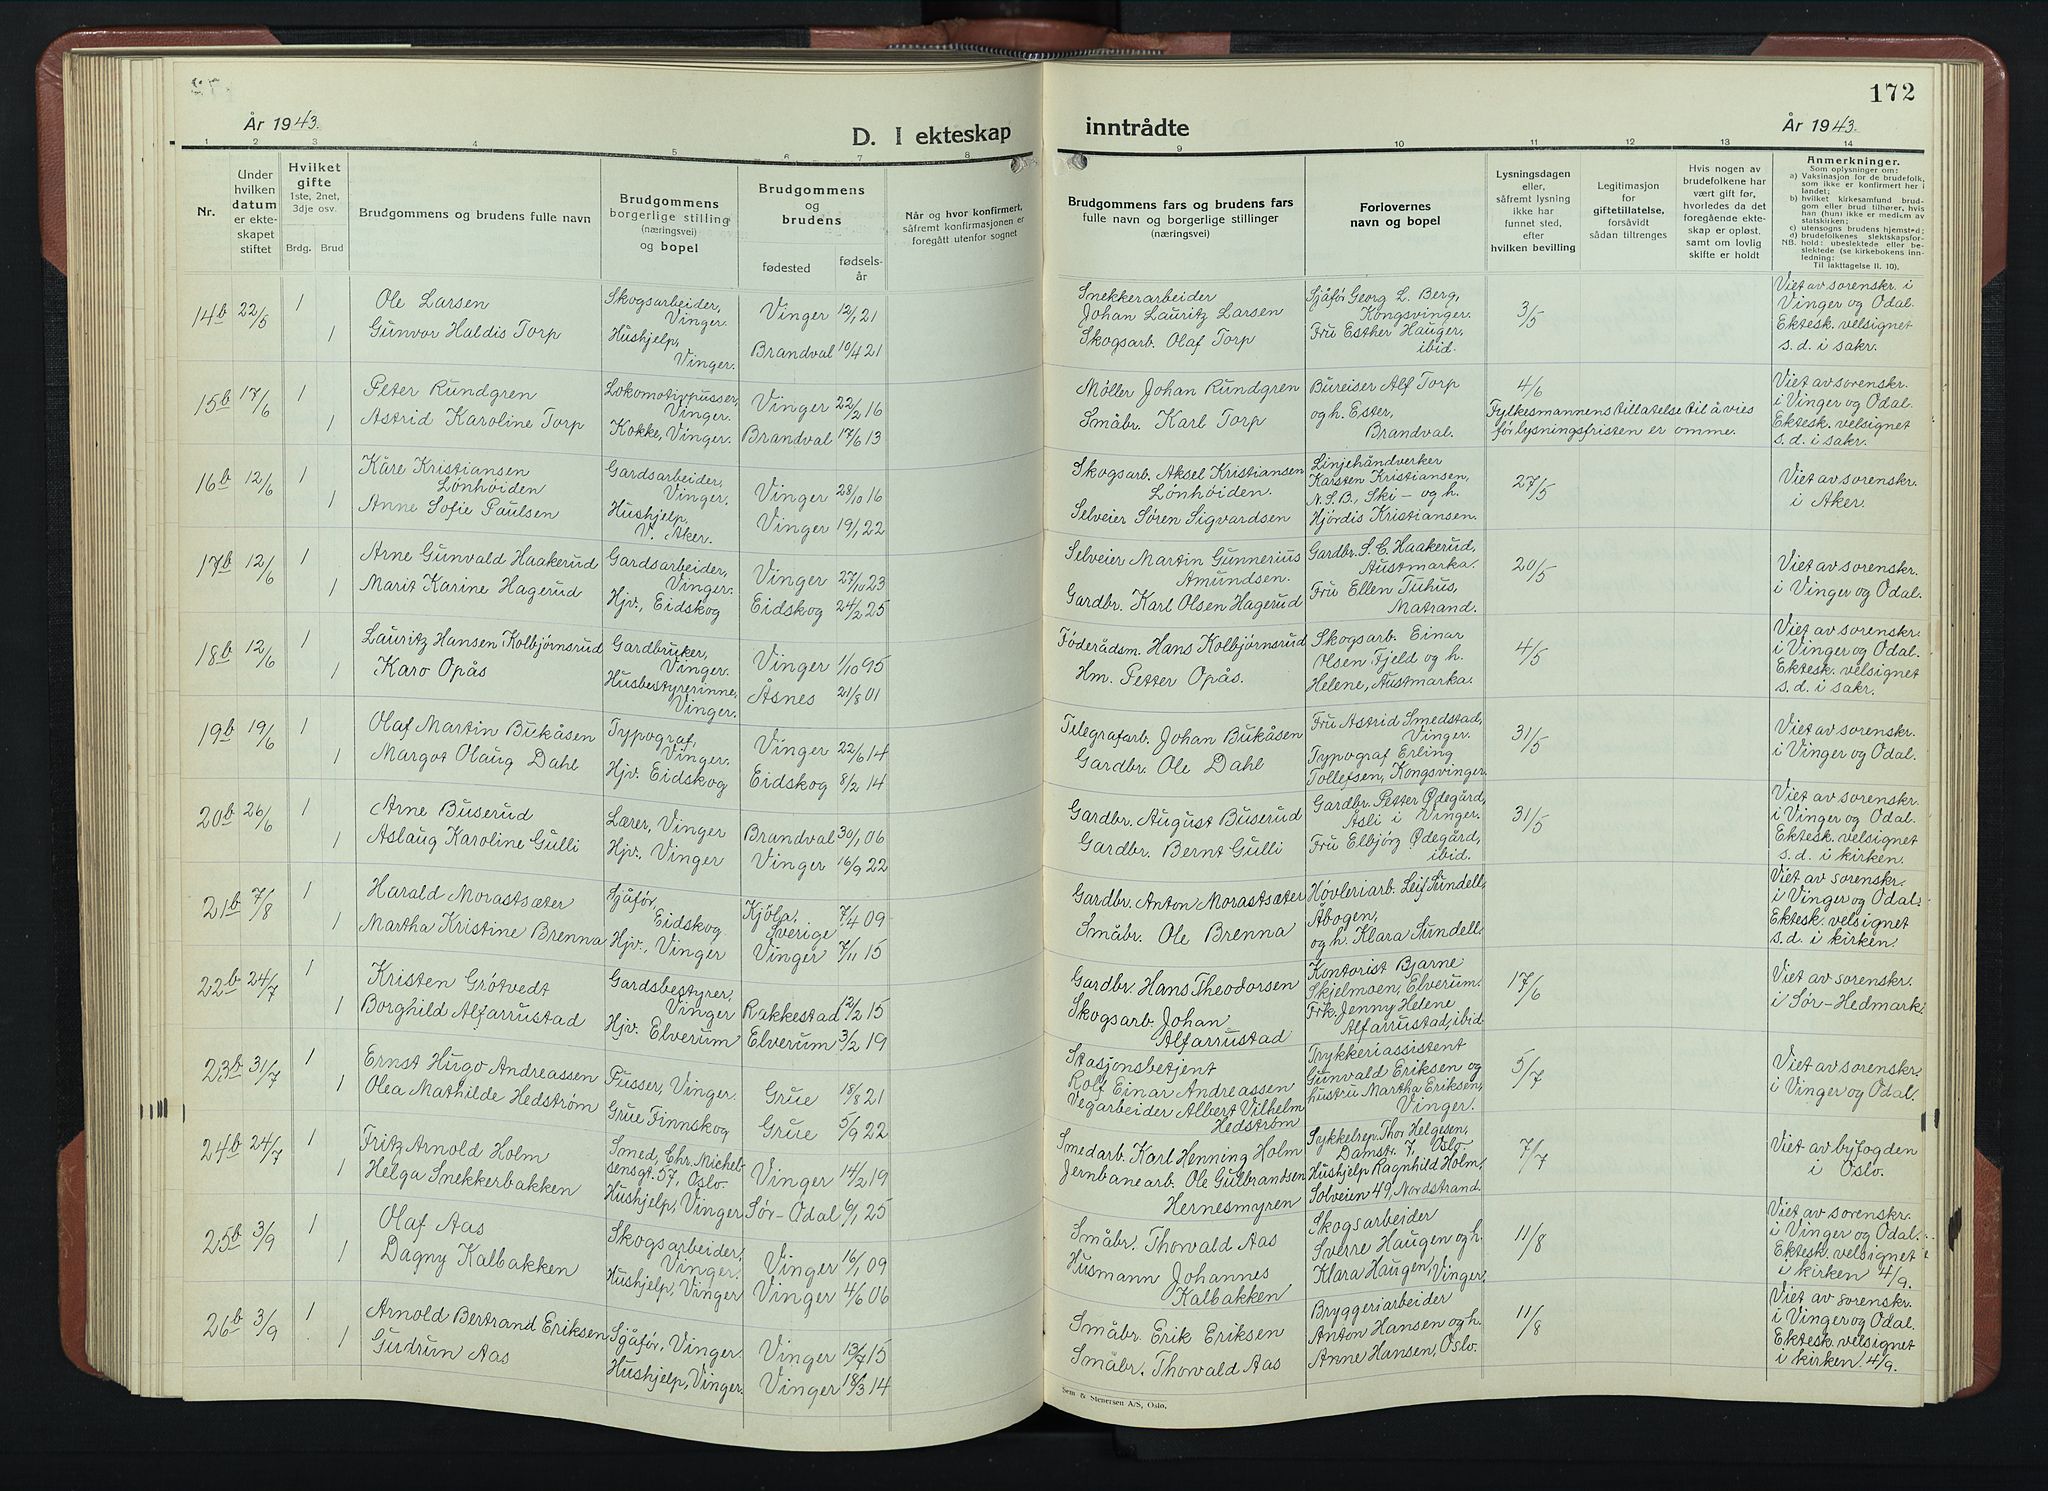 172
År 1943.
D. I ekteskap inntrådte
År 1943.
1 2 3 4 5 6 7 8 9 10 11 12 13 14
Nr.
Under hvilken datum er ekteskapet stiftet
Hvilket gifte
1ste, 2net, 3dje osv.
Brdg. Brud
Brudgommens og brudens fulle navn
Brudgommens borgerlige stilling (næringsvei) og bopel
Brudgommens og brudens
fødested
fødselsår
Når og hvor konfirmert, såfremt konfirmasjonen er foregått utenfor sognet
Brudgommens fars og brudens fars fulle navn og borgerlige stillinger (næringsvei)
Forlovernes navn og bopel
Lysningsdagen eller, såfremt lysning ikke har funnet sted, efter hvilken bevilling
Legitimasjon for giftetillatelse, forsåvidt sådan tiltrenges
Hvis nogen av brudefolkene har vært gift før, hvorledes da det foregående ekteskap er opløst, samt om lovlig skifte er holdt
Anmerkninger.
Som oplysninger om:
a) Vaksinasjon for de brudefolk, som ikke er konfirmert her i landet;
b) hvilket kirkesamfund brudgom eller brud tilhører, hvis han (hun) ikke er medlem av statskirken;
c) utensogns brudens hjemsted;
d) brudefolkenes slektskapsforhold: ubeslektede eller beslektede (se kirkebokens innledning:
NB. Til iakttagelse II. 10).
14b 22/5 1 Ole Larsen Skogsarbeider, Vinger. Vinger 12/1 21
1 Gunvor Haldis Torp Hushjelp, Vinger. Brandval 10/4 21
Snekkerarbeider Johan Lauritz Larsen
Skogsarb. Olaf Torp
Sjåfør Georg L. Berg, Kongsvinger.
Fru Esther Hauger, ibid.
3/5
Viet av sorenskr. i Vinger og Odal. Ektesk. velsignet s. d. i sakr.
15b 17/6 1 Peter Rundgren Lokomotivpusser, Vinger. Vinger 22/2 16
1 Astrid Karoline Torp Kokke, Vinger. Brandval 17/6 13
Møller Johan Rundgren
Småbr. Karl Torp
Bureiser Alf Torp og h. Ester, Brandval.
4/6
Fylkesmannens tillatelse til å vies før lysningsfristen er omme.
Viet av sorenskr. i Vinger og Odal. Ektesk. velsignet s. d. i sakr.
16b 12/6 1 Kåre Kristiansen Lønhøiden Gardsarbeider, Vinger. Vinger 28/10 16
1 Anne Sofie Paulsen Hushjelp, V. Aker. Vinger 19/1 22
Skogsarb. Aksel Kristiansen Lønhøiden.
Selveier Søren Sigvardsen
Linjehåndverker Karsten Kristiansen, N.S.B., Ski - og h. Hjørdis Kristiansen.
27/5
Viet av sorenskr. i Aker.
17b 12/6 1 Arne Gunvald Haakerud Gardsarbeider, Vinger. Vinger 27/10 23
1 Marit Karine Hagerud Hjv., Eidskog Eidskog 24/2 25
Selveier Martin Gunnerius Amundsen.
Gardbr. Karl Olsen Hagerud
Gardbr. S. C. Haakerud, Austmarka.
Fru Ellen Tuhus, Matrand.
20/5
Viet av sorenskr. i Vinger og Odal.
18b 12/6 1 Lauritz Hansen Kolbjørnsrud Gardbruker, Vinger. Vinger 1/10 95
1 Karo Opås Husbestyrerinne, Vinger. Åsnes 21/8 01
Føderådsm. Hans Kolbjørnsrud
Hm. Petter Opås.
Skogsarb. Einar Olsen Fjeld og h. Helene, Austmarka.
4/5
Viet av sorenskr. i Vinger og Odal. Ektesk. velsignet s. d. i sakr.
19b 19/6 1 Olaf Martin Bukåsen Typograf, Vinger. Vinger 22/6 14
1 Margot Olaug Dahl Hjv. Eidskog Eidskog 8/2 14
Telegrafarb. Johan Bukåsen
Gardbr. Ole Dahl
Fru Astrid Smedstad, Vinger.
Typograf Erling Tollefsen, Kongsvinger.
31/5
Viet av sorenskr. i Vinger og Odal.
20b 26/6 1 Arne Buserud Lærer, Vinger Brandval 30/1 06
1 Aslaug Karoline Gulli Hjv., Vinger Vinger 16/9 22
Gardbr. August Buserud
Gardbr. Bernt Gulli
Gardbr. Petter Ødegård, Åsli i Vinger.
Fru Elbjørg Ødegård, ibid.
31/5
Viet av sorenskr. i Vinger og Odal. Ektesk. velsignet s. d. i kirken.
21b 7/8 1 Harald Morastsæter Sjåfør, Eidskog Kjøla, Sverige 7/4 09
1 Martha Kristine Brenna Hjv., Vinger Vinger 7/11 15
Gardbr. Anton Morastsæter
Småbr. Ole Brenna
Høvleriarb. Leif Sundell, Åbogen, og h. Klara Sundell.
Viet av sorenskr. i Vinger og Odal. Ektesk. velsignet s. d. i kirken.
22b 24/7 1 Kristen Grøtvedt Gardsbestyrer, Vinger Rakkestad 12/2 15
1 Borghild Alfarrustad Hjv. Elverum Elverum 3/2 19
Gardbr. Hans Theodorsen
Skogsarb. Johan Alfarrustad
Kontorist Bjarne Skjelmoen, Elverum.
Frk. Jenny Helene Alfarrustad, ibid.
17/6
Viet av sorenskr. i Sør-Hedmark.
23b 31/7 1 Ernst Hugo Andreassen Pusser, Vinger. Grue 18/8 21
1 Olea Mathilde Hedstrøm Grue Finnskog Grue 5/9 22
Stasjonsbetjent Rolf Einar Andreassen
Vegarbeider Albert Vilhelm Hedstrøm
Trykkeriassistent Gunvald Eriksen og hustru Martha Eriksen, Vinger.
5/7
Viet av sorenskr. i Vinger og Odal.
24b 24/7 1 Fritz Arnold Holm Smed, Chr. Michelsensgt. 57, Oslo. Vinger 14/2 19
1 Helga Snekkerbakken Hushjelp, Vinger Sør-Odal 6/1 25
Smedarb. Karl Henning Holm
Jernbanearb. Ole Gulbrandsen Hernesmyren
Sykkelrep. Thor Helgesen, Damstr. 7, Oslo
Hushjelp Ragnhild Holm, Solveien 49, Nordstrand.
7/7
Viet av byfogden i Oslo.
25b 3/9 1 Olaf Aas Skogsarbeider, Vinger. Vinger 16/1 09
1 Dagny Kalbakken Hushjelp, Vinger Vinger 4/6 06
Småbr. Thorvald Aas
Husmann Johannes Kalbakken
Skogsarbeider Sverre Haugen og h. Klara Haugen, Vinger.
11/8
Viet av sorenskr. i Vinger og Odal. Ektesk. velsignet i kirken 4/9.
26b 3/9 1 Arnold Bertrand Eriksen Sjåfør, Vinger. Vinger 13/7 15
1 Gudrun Aas Hushjelp, Vinger. Vinger 18/3 14
Småbr. Erik Eriksen
Småbr. Thorvald Aas
Bryggeriarbeider Anton Hansen og h. Anne Hansen, Oslo.
11/8
Viet av sorenskr. i Vinger og Odal. Ektesk. velsignet i kirken 4/9.
Sem & Stenersen A/S, Oslo.